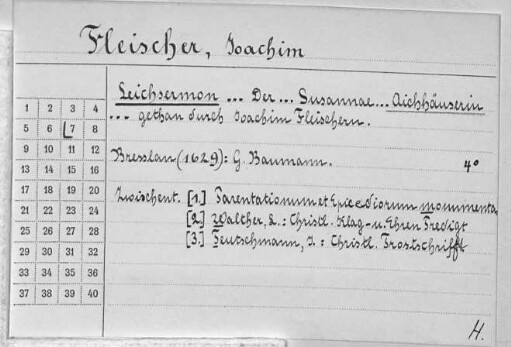 Fleischer, Joachim
Leichsermon ... Der ... Susannae ... Aichhäuserin
... gethan durch Joachim Fleischern.
Bresslau (1629): G. Baumann. 4°
Zwischent. [1.] Parentationum et Epicediorum monumenta
[2.] Walther, L.: Christl. Klag- u. Ehren Predigt
[3.] Teutschmann, J.: Christl. Trostschrifft
1 2 3 4
5 6 7 8
9 10 11 12
13 14 15 16
17 18 19 20
21 22 23 24
25 26 27 28
29 30 31 32
33 34 35 36
37 38 39 40
H.